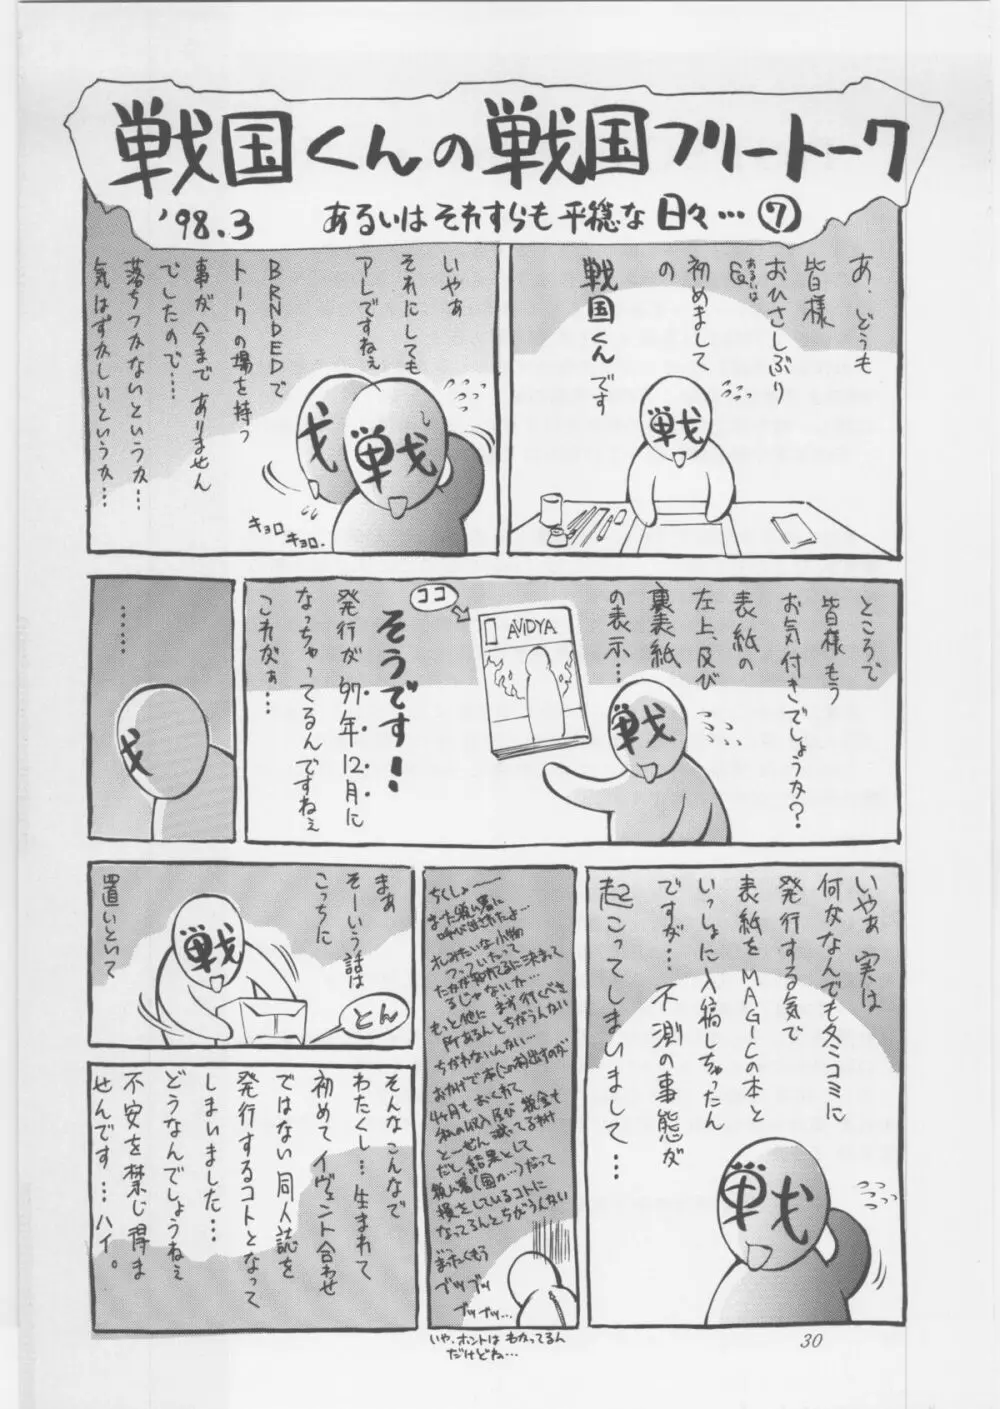 戦国くんの戦国フリートーク
'98.3
あるいはそれすらも平穏な日々…⑦
あ、どうも
皆様
おひさしぶり
あるいは
&
初めまして
の
戦国くんです
戦
いやぁ
それにしても
アレですねぇ
BRNDEDで
トークの場を持つ
事が今までありません
でしたので…
落ちつかないというか…
気はずかしいというか…
戦
キョロ
キョロ。
ところで
皆様もう
お気付きでしょうか?
表紙の
左上、及び
裏表紙
の表示…
戦
ココ
AVIDYA
そうです!
発行が'97年12月に
なっちゃってるんですねぇ
これがぁ…
……
いやぁ実は
何がなんでも冬コミに
発行する気で
表紙をMAGICの本と
いっしょに入稿しちゃったん
ですが…不測の事態が
起こってしまいまして…
戦
ちくしょー
また税ム署に
呼び出されたよ…
オレみたいな小物
つっついたって
たかが知れてるに決まって
るじゃないか…
もっと他にまず行くべき
所あるんとちがうんかい
ちがわないんかい…
おかげで本(この本)出すのが
4ヶ月もおくれて
私の収入及び税金も
とーぜん減ってるわけ
だし結果として
税ム署(国か…)だって
損をしているコトに
なってるんとちがうんかい
まったくもう
ブツブツ
ブツブツ…
いや、ホントはわかってるん
だけどね…
まぁ
そーいう話は
こっちに
置いといて
戦
とん
そんなこんなで
わたくし…生まれて
初めてイヴェント合わせ
ではない同人誌を
発行するコトとなって
しまいました…
どうなんでしょうねぇ
不安を禁じ得ま
せんです…ハイ。
30